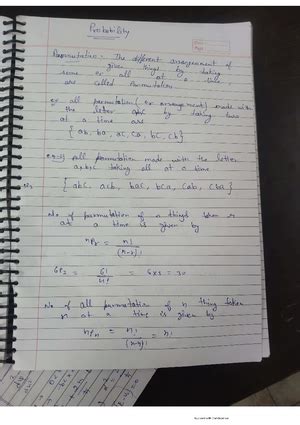 Probability
Permutation:- The different arrangement of
given things by taking
some or all at a time
are called Permutation
ex all permutation (or arrangement) made with
the letter abc by taking two
at a time are
{ab, ba, ac, ca, bc, cb}
ex-2) All permutation made with the letter
a,b,c taking all at a time
{abc, acb, bac, bca, cab, cba}
No of permutation of n things when r
at a time is given by
nPr = n! / (n-r)!
6P2 = 6! / 4! = 6x5 = 30
No of all permutation of n thing taken
n at a time is given by
nPn = n! / (n-n)! = n!